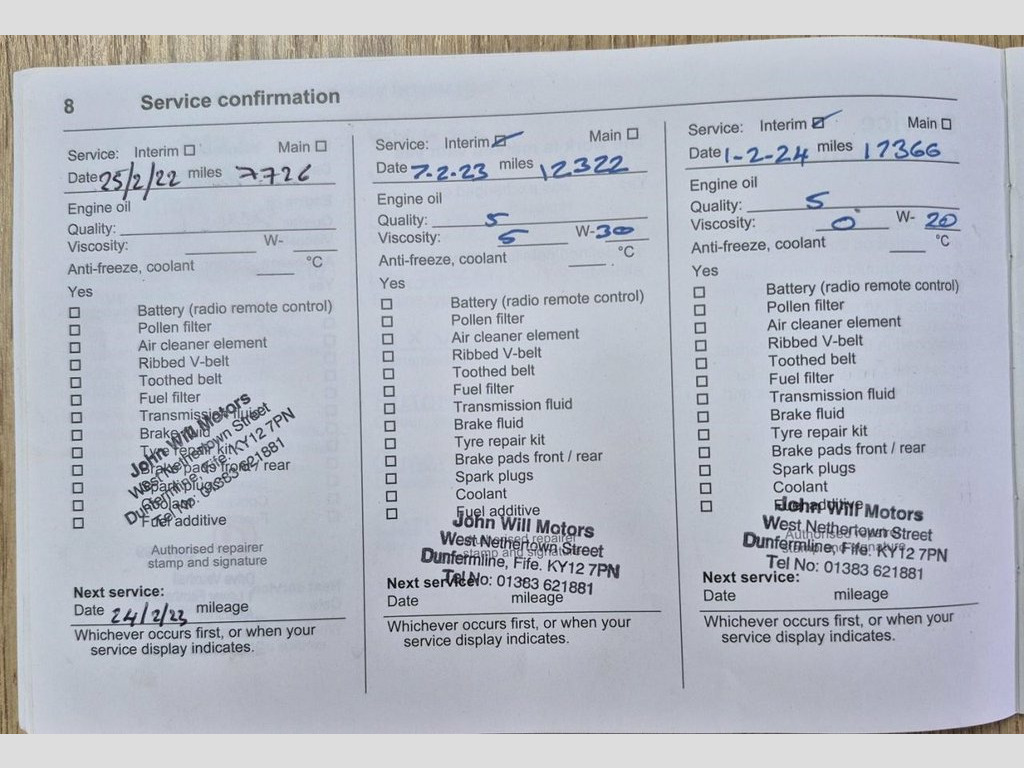 8 Service confirmation
Service: Interim Main
Date 25/2/22 miles 7726
Engine oil
Quality:
Viscosity: W-
Anti-freeze, coolant °C
Yes
Battery (radio remote control)
Pollen filter
Air cleaner element
Ribbed V-belt
Toothed belt
Fuel filter
Transmission fluid
Brake fluid
Tyre repair kit
Brake pads front / rear
Spark plugs
Coolant
Fuel additive
John Will Motors
West Nethertown Street
Dunfermline, Fife. KY12 7PN
Tel No: 01383 621881
Authorised repairer
stamp and signature
Next service:
Date 24/2/23 mileage
Whichever occurs first, or when your
service display indicates.
Service: Interim Main
Date 7-2-23 miles 12322
Engine oil
Quality: 5
Viscosity: 5 W-30
Anti-freeze, coolant °C
Yes
Battery (radio remote control)
Pollen filter
Air cleaner element
Ribbed V-belt
Toothed belt
Fuel filter
Transmission fluid
Brake fluid
Tyre repair kit
Brake pads front / rear
Spark plugs
Coolant
Fuel additive
John Will Motors
Authorised repairer
West Nethertown Street
stamp and signature
Dunfermline, Fife. KY12 7PN
Tel No: 01383 621881
Next service:
Date mileage
Whichever occurs first, or when your
service display indicates.
Service: Interim Main
Date 1-2-24 miles 17366
Engine oil
Quality: 5
Viscosity: 0 W- 20
Anti-freeze, coolant °C
Yes
Battery (radio remote control)
Pollen filter
Air cleaner element
Ribbed V-belt
Toothed belt
Fuel filter
Transmission fluid
Brake fluid
Tyre repair kit
Brake pads front / rear
Spark plugs
Coolant
Fuel additive
John Will Motors
West Nethertown Street
Authorised repairer
Dunfermline, Fife. KY12 7PN
stamp and signature
Tel No: 01383 621881
Next service:
Date mileage
Whichever occurs first, or when your
service display indicates.